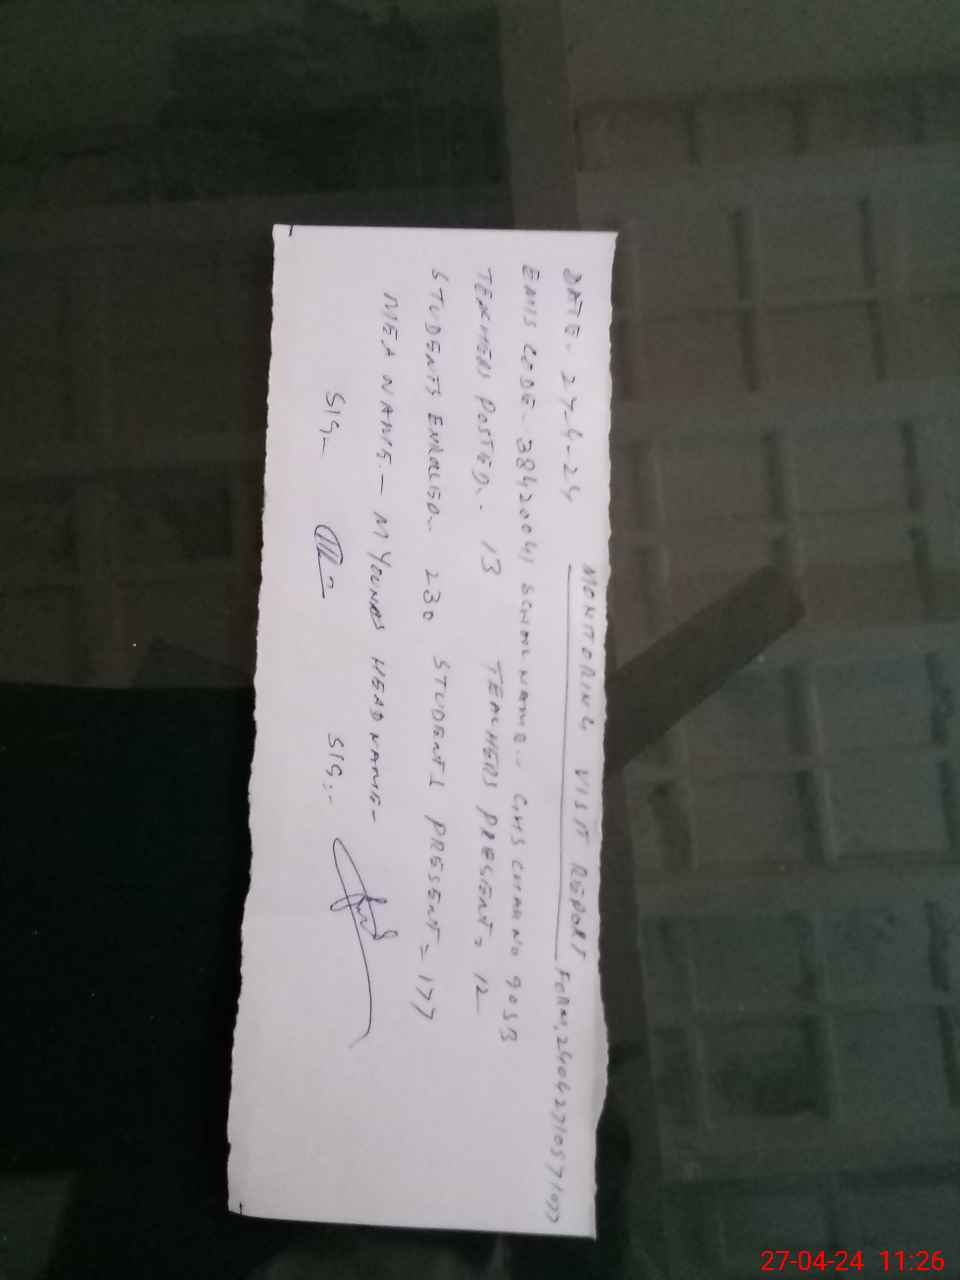 MONITORING VISIT REPORT FORM, 24042710571077
DATE- 27-4-24
EMIS CODE- 38420041 SCHOOL NAME- GHS CHAK NO 90SB
TEACHERS POSTED- 13 TEACHERS PRESENT= 12
STUDENTS ENROLLED- 230 STUDENTS PRESENT= 177
MEA NAME- M YOUNAS HEAD NAME-
SIG- SIG:-
27-04-24 11:26